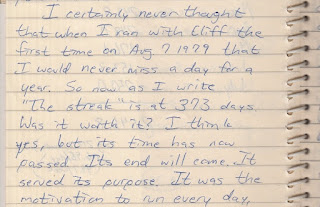 I certainly never thought
that when I ran with Cliff the
first time on Aug 7 1979 that
I would never miss a day for a
year. So now as I write
"The streak" is at 373 days.
Was it worth it? I think
yes, but its time has now
passed. Its end will come. It
served its purpose. It was the
motivation to run every day,